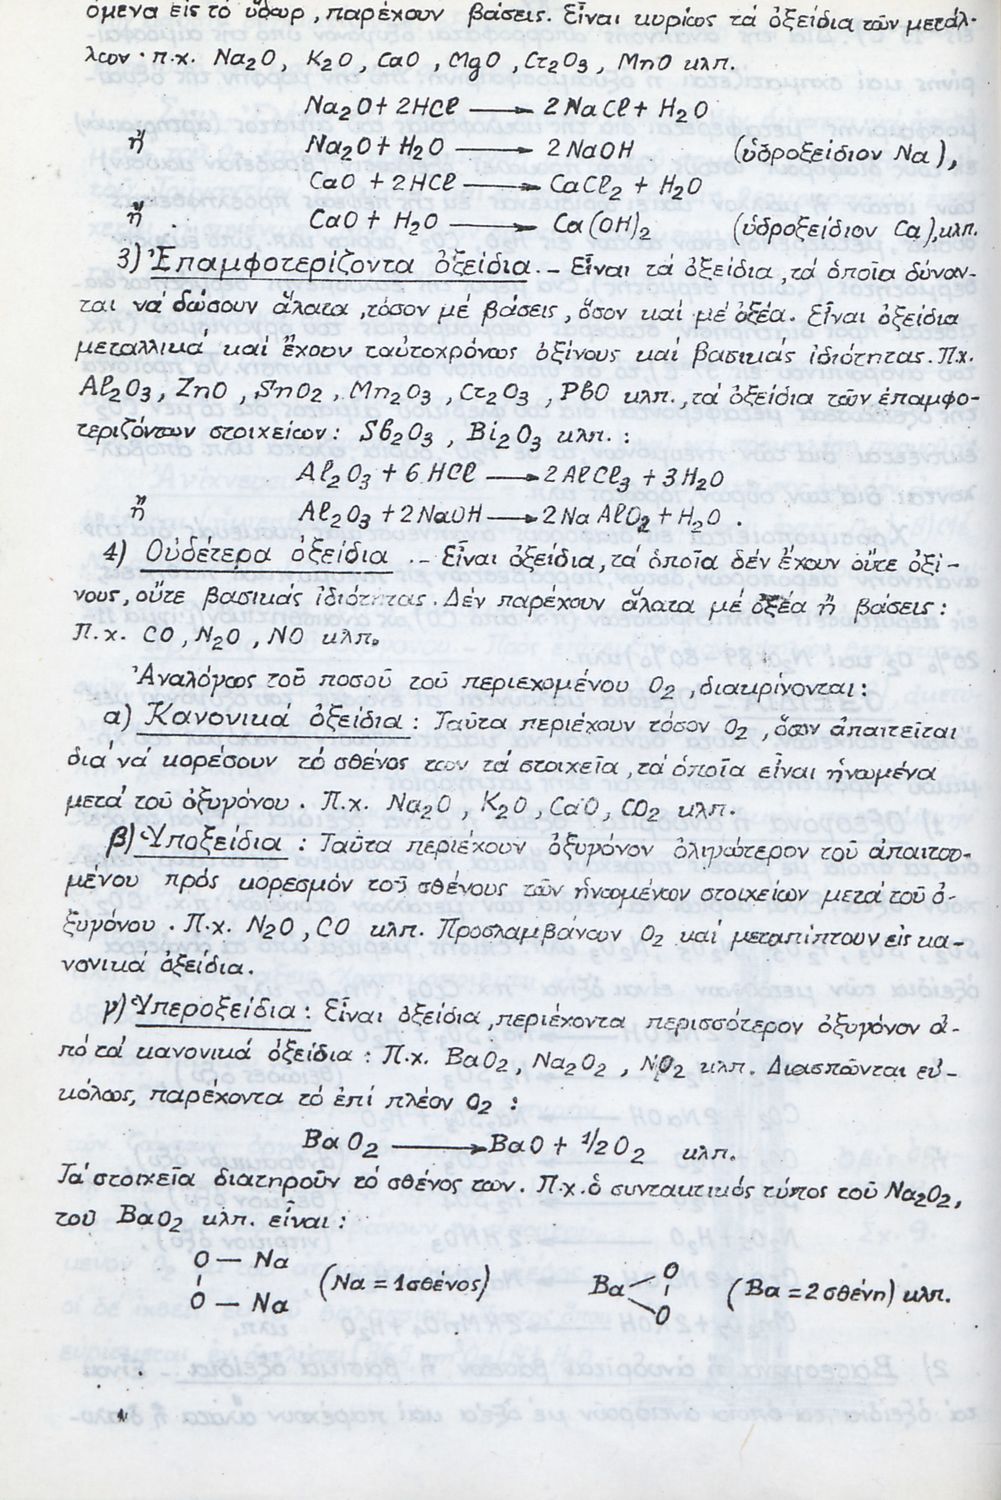 όμενα εἰς τό ὕδωρ, παρέχουν βάσεις. Εἶναι κυρίως τά ὀξείδια τῶν μετάλ-
λων· π.χ. Na2O, K2O, CaO, MgO, Cr2O3, MnO κλπ.
Na2O + 2HCl ⟶ 2NaCl + H2O
ἤ Na2O + H2O ⟶ 2NaOH (ὑδροξείδιον Na),
CaO + 2HCl ⟶ CaCl2 + H2O
ἤ CaO + H2O ⟶ Ca(OH)2 (ὑδροξείδιον Ca), κλπ.
3) Ἐπαμφοτερίζοντα ὀξείδια.- Εἶναι τά ὀξείδια, τά ὁποῖα δύναν-
ται νά δώσουν ἅλατα, τόσον μέ βάσεις, ὅσον καί μέ ὀξέα. Εἶναι ὀξείδια
μεταλλικά καί ἔχουν ταὐτοχρόνως ὀξίνους καί βασικάς ἰδιότητας. Π.χ.
Al2O3, ZnO, SnO2, Mn2O3, Cr2O3, PbO κλπ., τά ὀξείδια τῶν ἐπαμφο-
τεριζόντων στοιχείων: Sb2O3, Bi2O3 κλπ.:
Al2O3 + 6HCl ⟶ 2AlCl3 + 3H2O
ἤ Al2O3 + 2NaOH ⟶ 2NaAlO2 + H2O.
4) Οὐδέτερα ὀξείδια.- Εἶναι ὀξείδια, τά ὁποῖα δέν ἔχουν οὔτε ὀξί-
νους, οὔτε βασικάς ἰδιότητας. Δέν παρέχουν ἅλατα μέ ὀξέα ἤ βάσεις:
Π.χ. CO, N2O, NO κλπ.
Ἀναλόγως τοῦ ποσοῦ τοῦ περιεχομένου O2, διακρίνονται:
α) Κανονικά ὀξείδια: Ταῦτα περιέχουν τόσον O2, ὅσον ἀπαιτεῖται
διά νά κορέσουν τό σθένος των τά στοιχεῖα, τά ὁποῖα εἶναι ἡνωμένα
μετά τοῦ ὀξυγόνου. Π.χ. Na2O, K2O, CaO, CO2 κλπ.
β) Ὑποξείδια: Ταῦτα περιέχουν ὀξυγόνον ὀλιγώτερον τοῦ ἀπαιτου-
μένου πρός κορεσμόν τοῦ σθένους τῶν ἡνωμένων στοιχείων μετά τοῦ ὀ-
ξυγόνου. Π.χ. N2O, CO κλπ. Προσλαμβάνουν O2 καί μεταπίπτουν εἰς κα-
νονικά ὀξείδια.
γ) Ὑπεροξείδια: Εἶναι ὀξείδια, περιέχοντα περισσότερον ὀξυγόνον ἀ-
πό τά κανονικά ὀξείδια: Π.χ. BaO2, Na2O2, NO2 κλπ. Διασπῶνται εὐ-
κόλως, παρέχοντα τό ἐπί πλέον O2:
BaO2 ⟶ BaO + 1/2O2 κλπ.
Τά στοιχεῖα διατηροῦν τό σθένος των. Π.χ. ὁ συντακτικός τύπος τοῦ Na2O2,
τοῦ BaO2 κλπ. εἶναι:
O — Na
O — Na
(Na = 1σθένος)
Ba
O
O
(Ba = 2σθένη) κλπ.